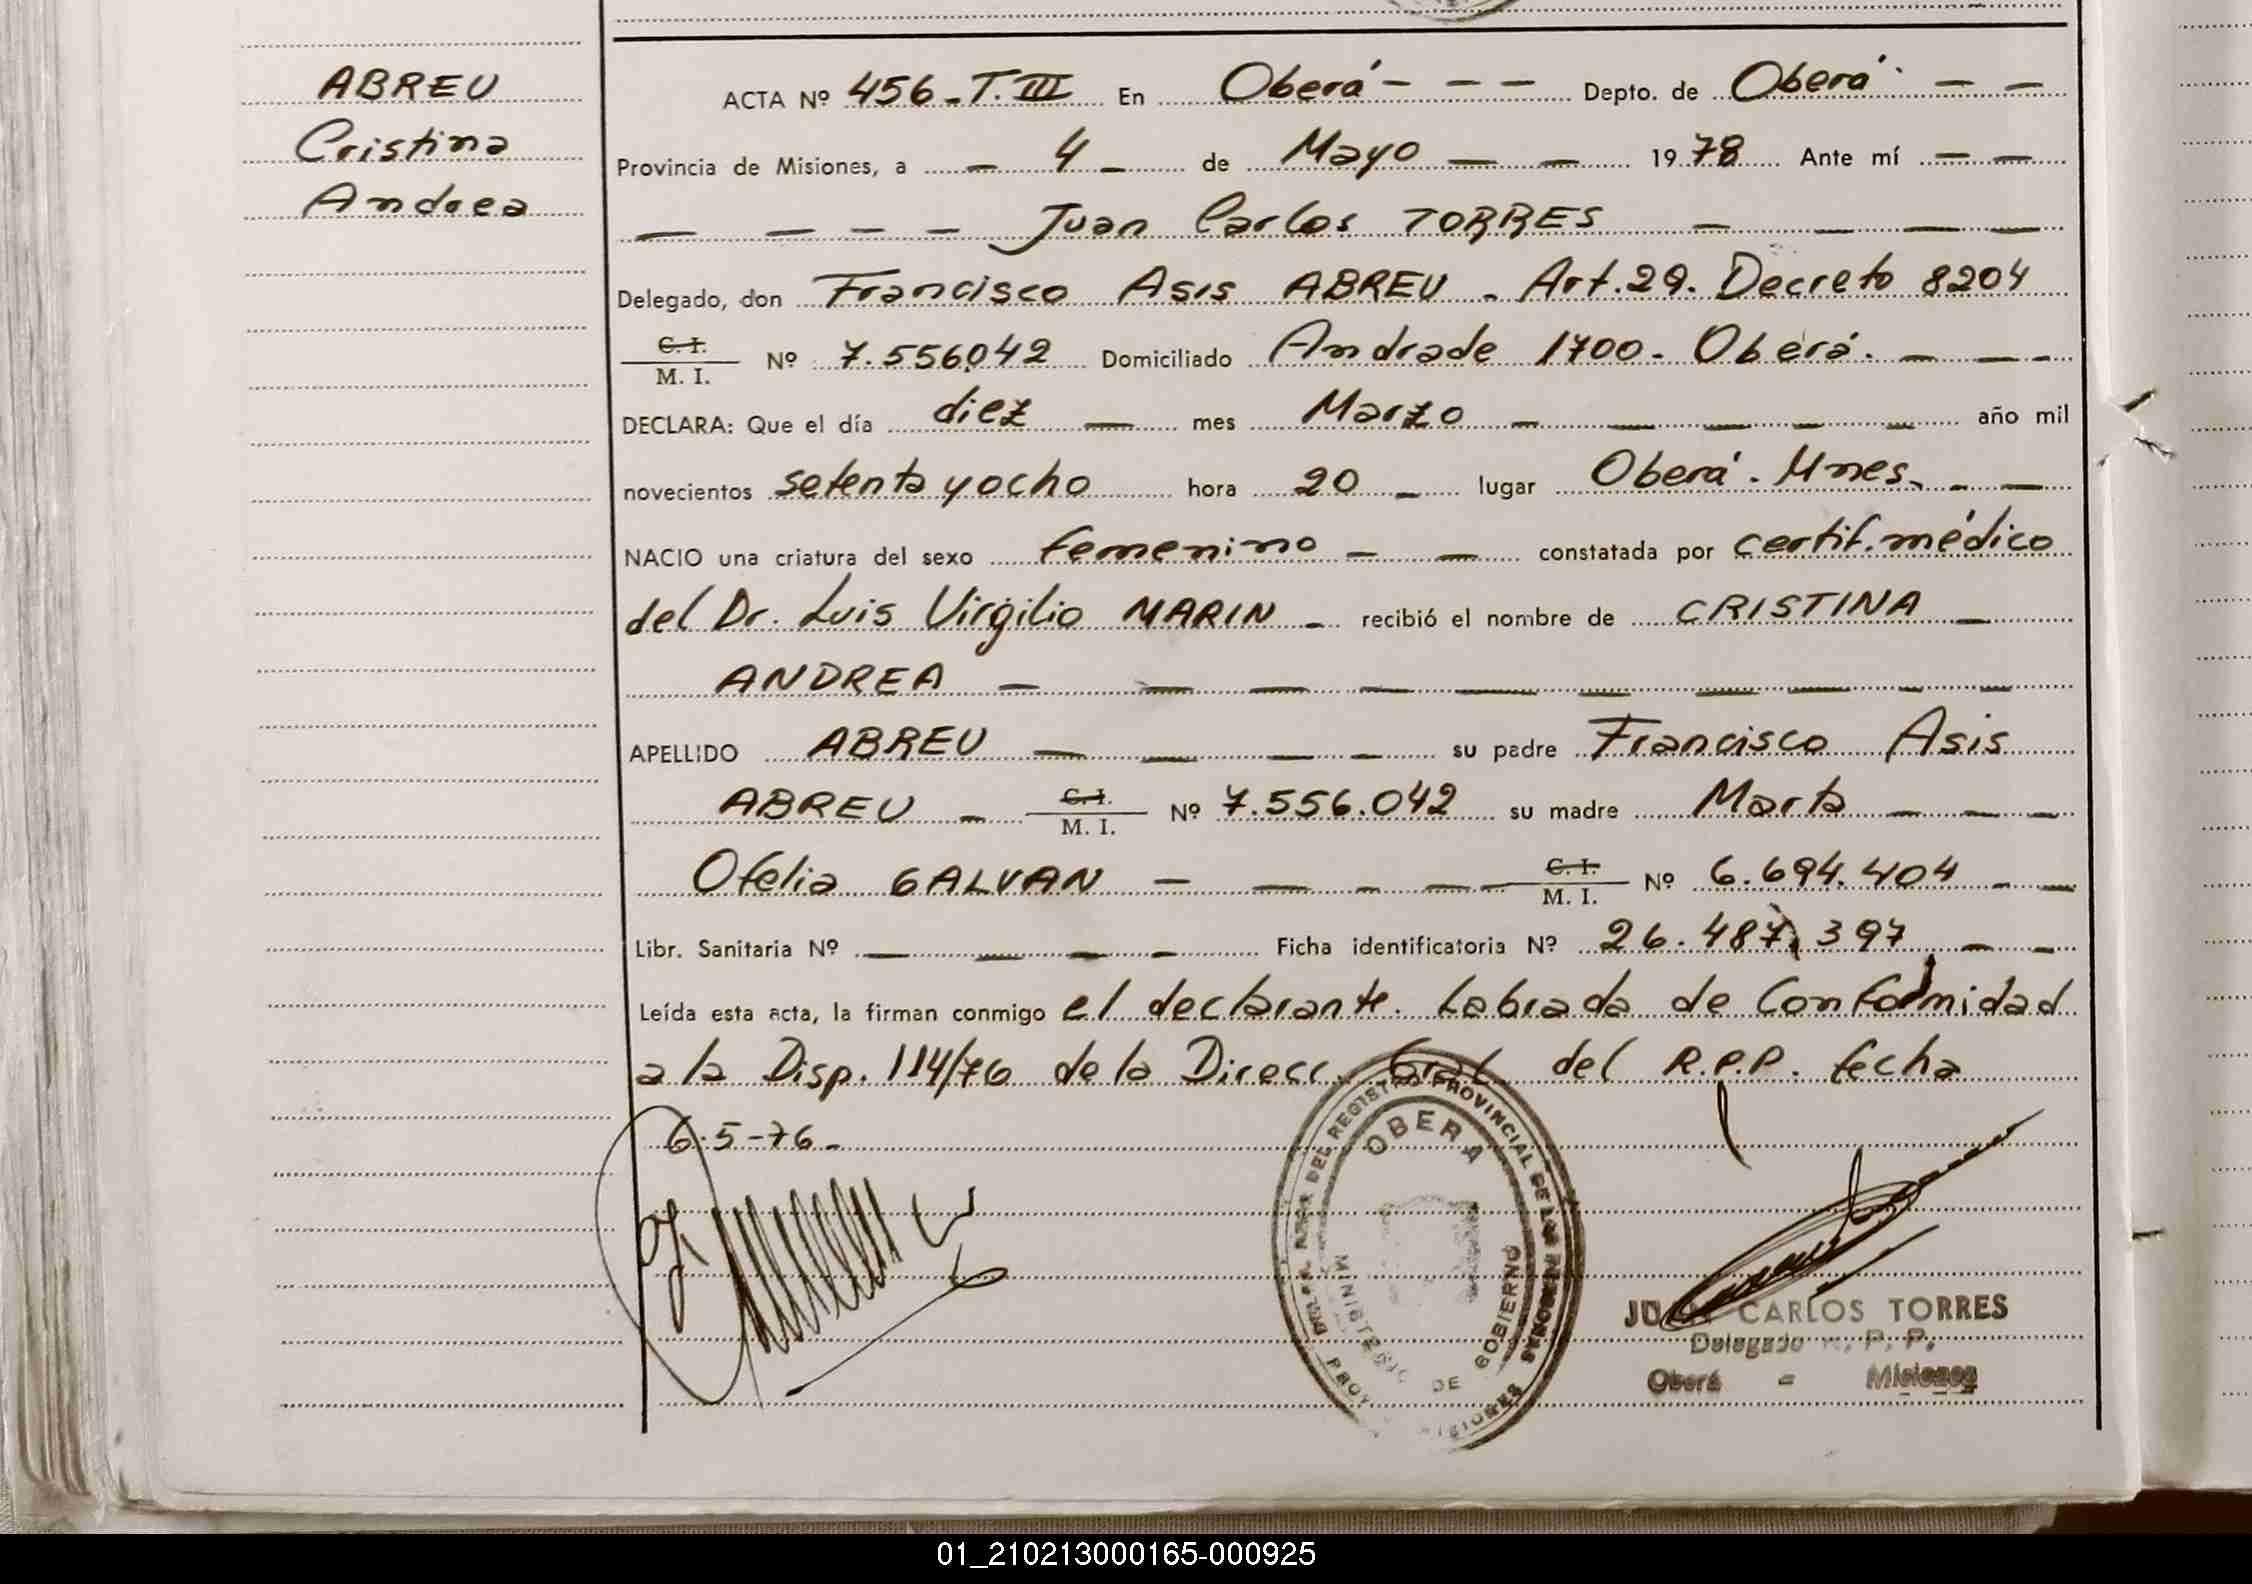 ABREU
Cristina
Andrea
ACTA Nº 456 - T. III En Oberá - - - Depto. de Oberá. - -
Provincia de Misiones, a - 4 - de Mayo - - 1978 Ante mí - -
- - - - Juan Carlos TORRES - - - -
Delegado, don Francisco Asis ABREU - Art. 29. Decreto 8204
C. I.
M. I. Nº 7.556.042 Domiciliado Andrade 1700. Oberá. - - -
DECLARA: Que el día diez - mes Marzo - - - - - año mil
novecientos setenta y ocho hora 20 - lugar Oberá. Mnes. - -
NACIO una criatura del sexo femenino - - constatada por certif. médico
del Dr. Luis Virgilio MARIN - recibió el nombre de CRISTINA -
ANDREA - - - - - - - - -
APELLIDO ABREU - - - - su padre Francisco Asis
ABREU - C. I.
M. I. Nº 7.556.042 su madre Marta - - -
Ofelia GALVAN - - - - C. I.
M. I. Nº 6.694.404 - -
Libr. Sanitaria Nº - - - - Ficha identificatoria Nº 26.487.397 - -
Leída esta acta, la firman conmigo el declarante. Labrada de Conformidad
a la Disp. 114/76 de la Direcc. Gral. del R.P.P. fecha
6-5-76-
OBERA
DEL REGISTRO PROVINCIAL DE LAS PERSONAS
MINISTERIO DE GOBIERNO
JUAN CARLOS TORRES
Delegado R. P. P.
Oberá - Misiones
01_210213000165-000925